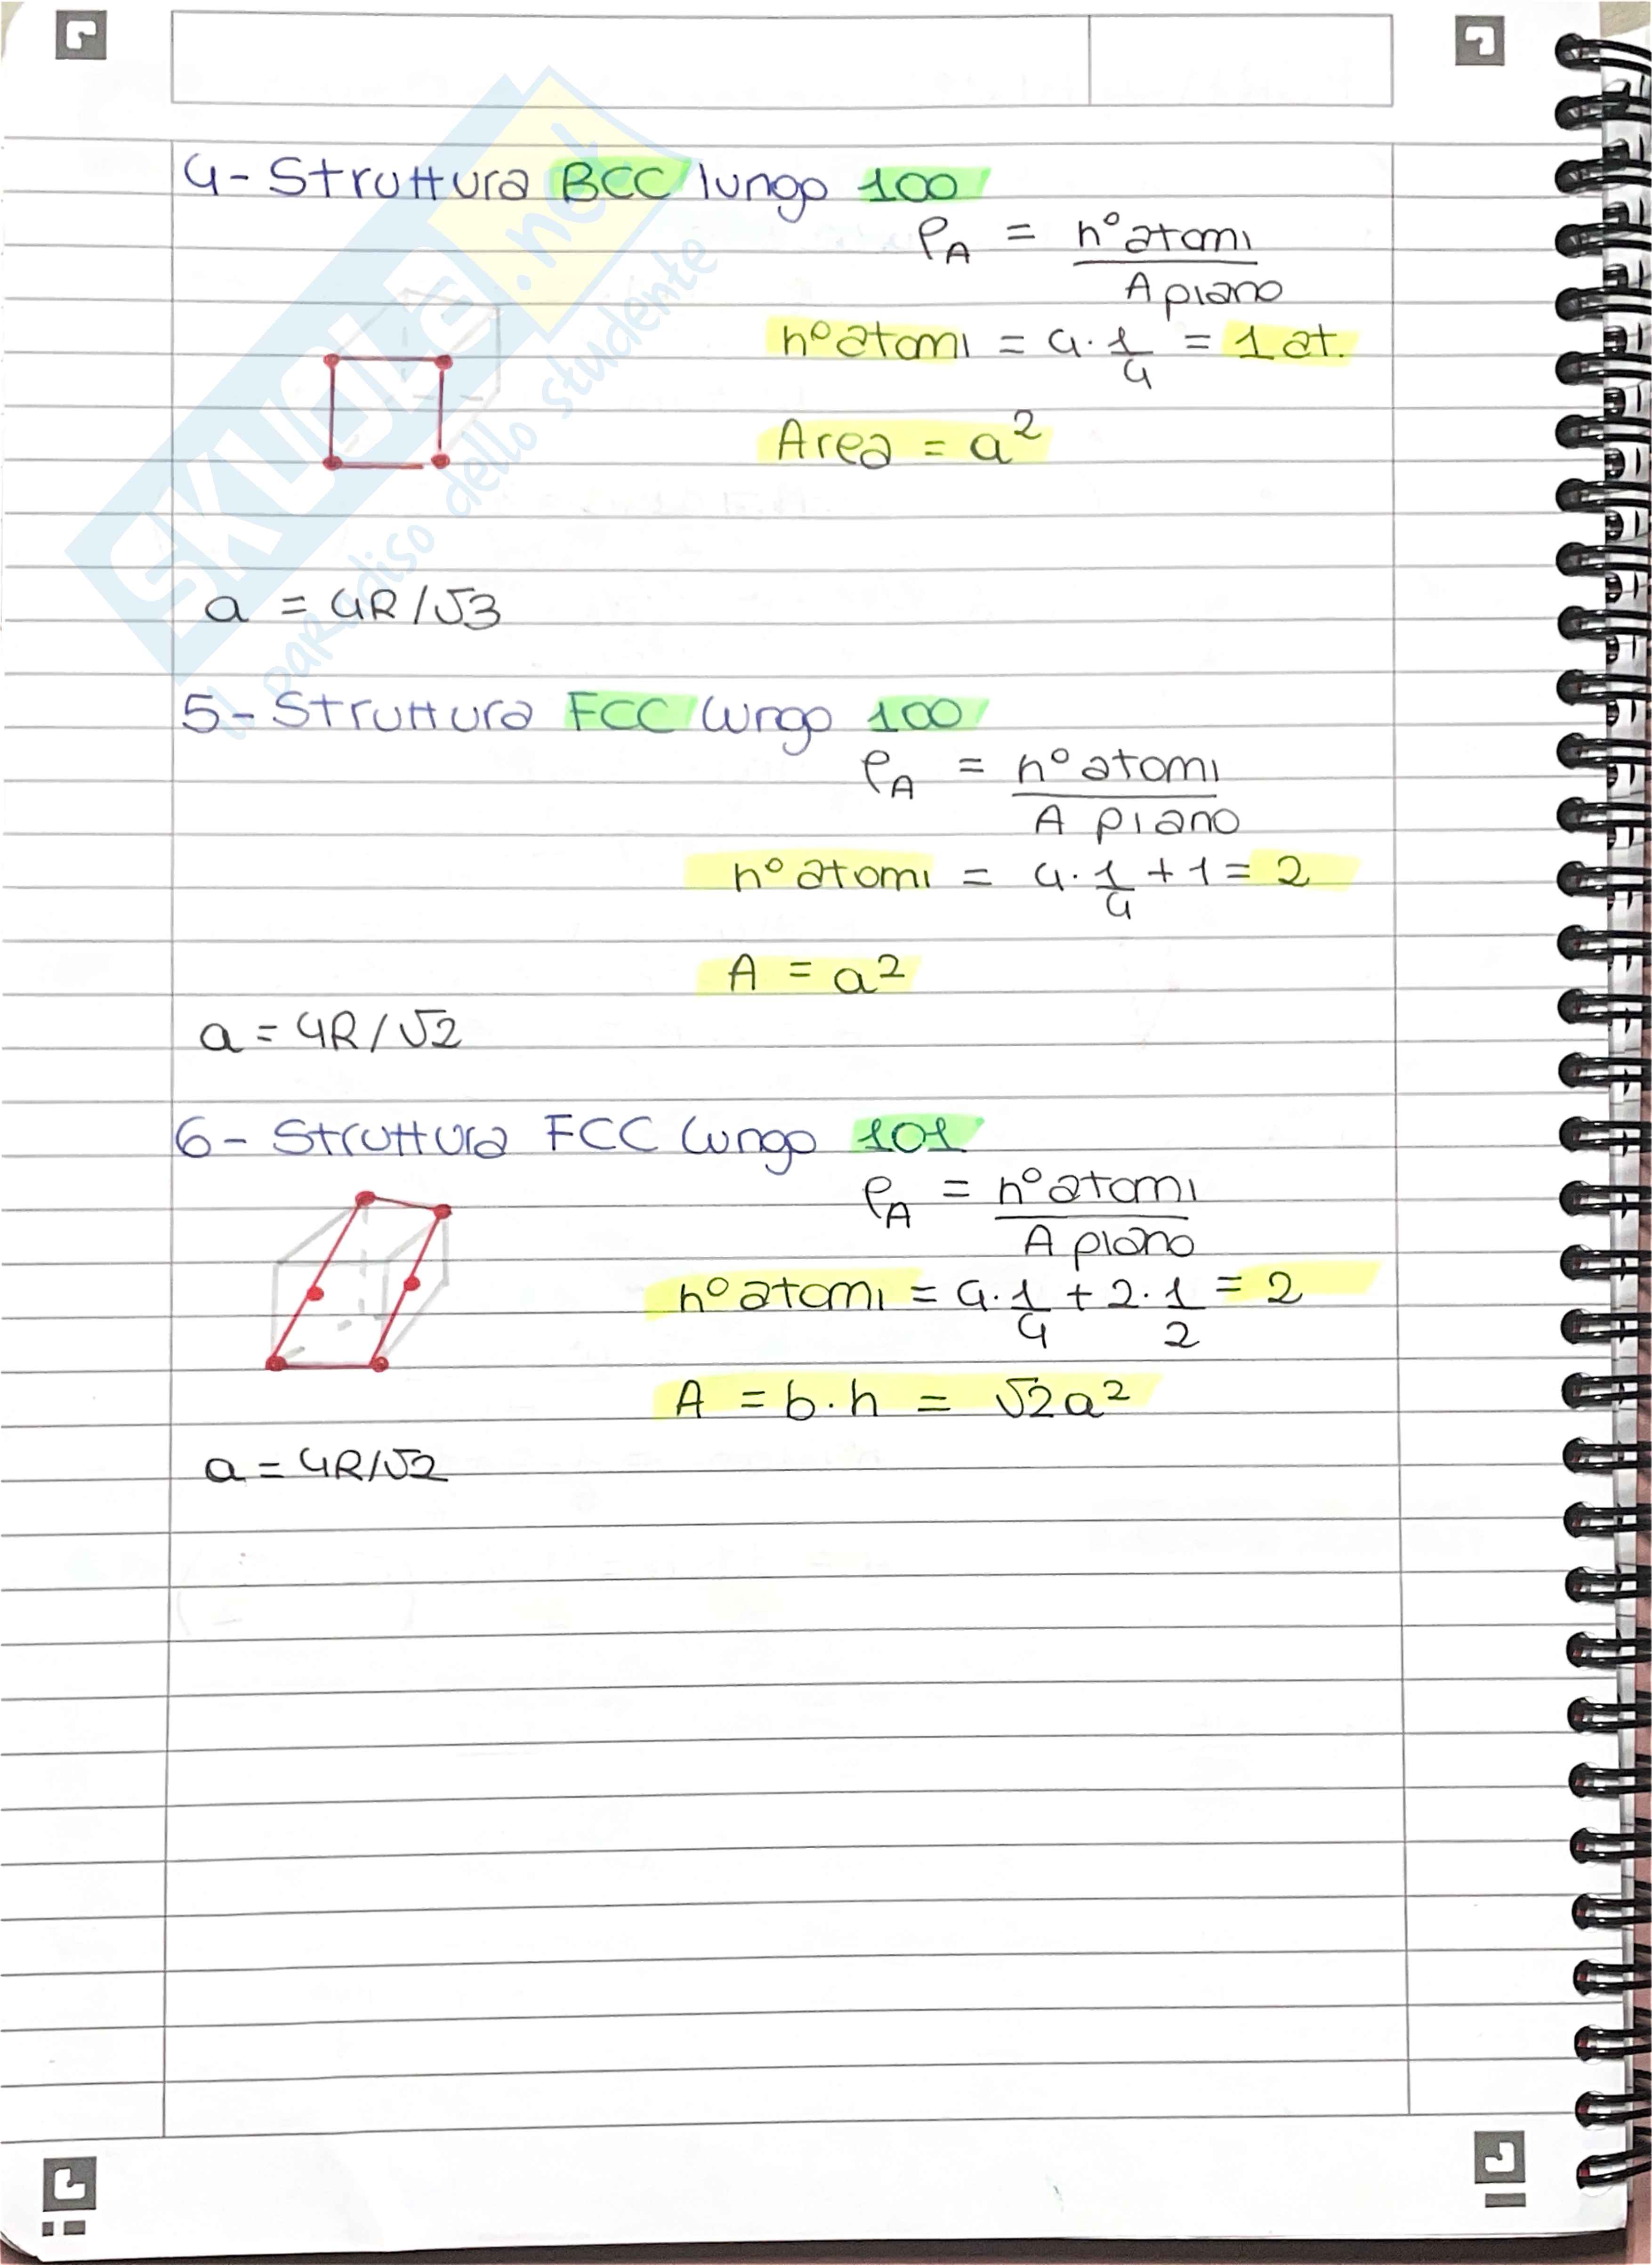 4- Struttura BCC lungo 100
ρA = n° atomi / A piano
n° atomi = 4·1/4 = 1 at.
Area = a²
a = 4R/√3
5- Struttura FCC lungo 100
ρA = n° atomi / A piano
n° atomi = 4·1/4 + 1 = 2
A = a²
a = 4R/√2
6- Struttura FCC lungo 101
ρA = n° atomi / A piano
n° atomi = 4·1/4 + 2·1/2 = 2
A = b·h = √2a²
a = 4R/√2
SKUOLA.net
il paradiso dello studente